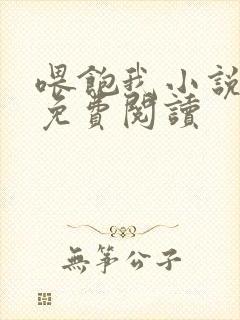 喂飽我小說
免費閱讀
無箏公子